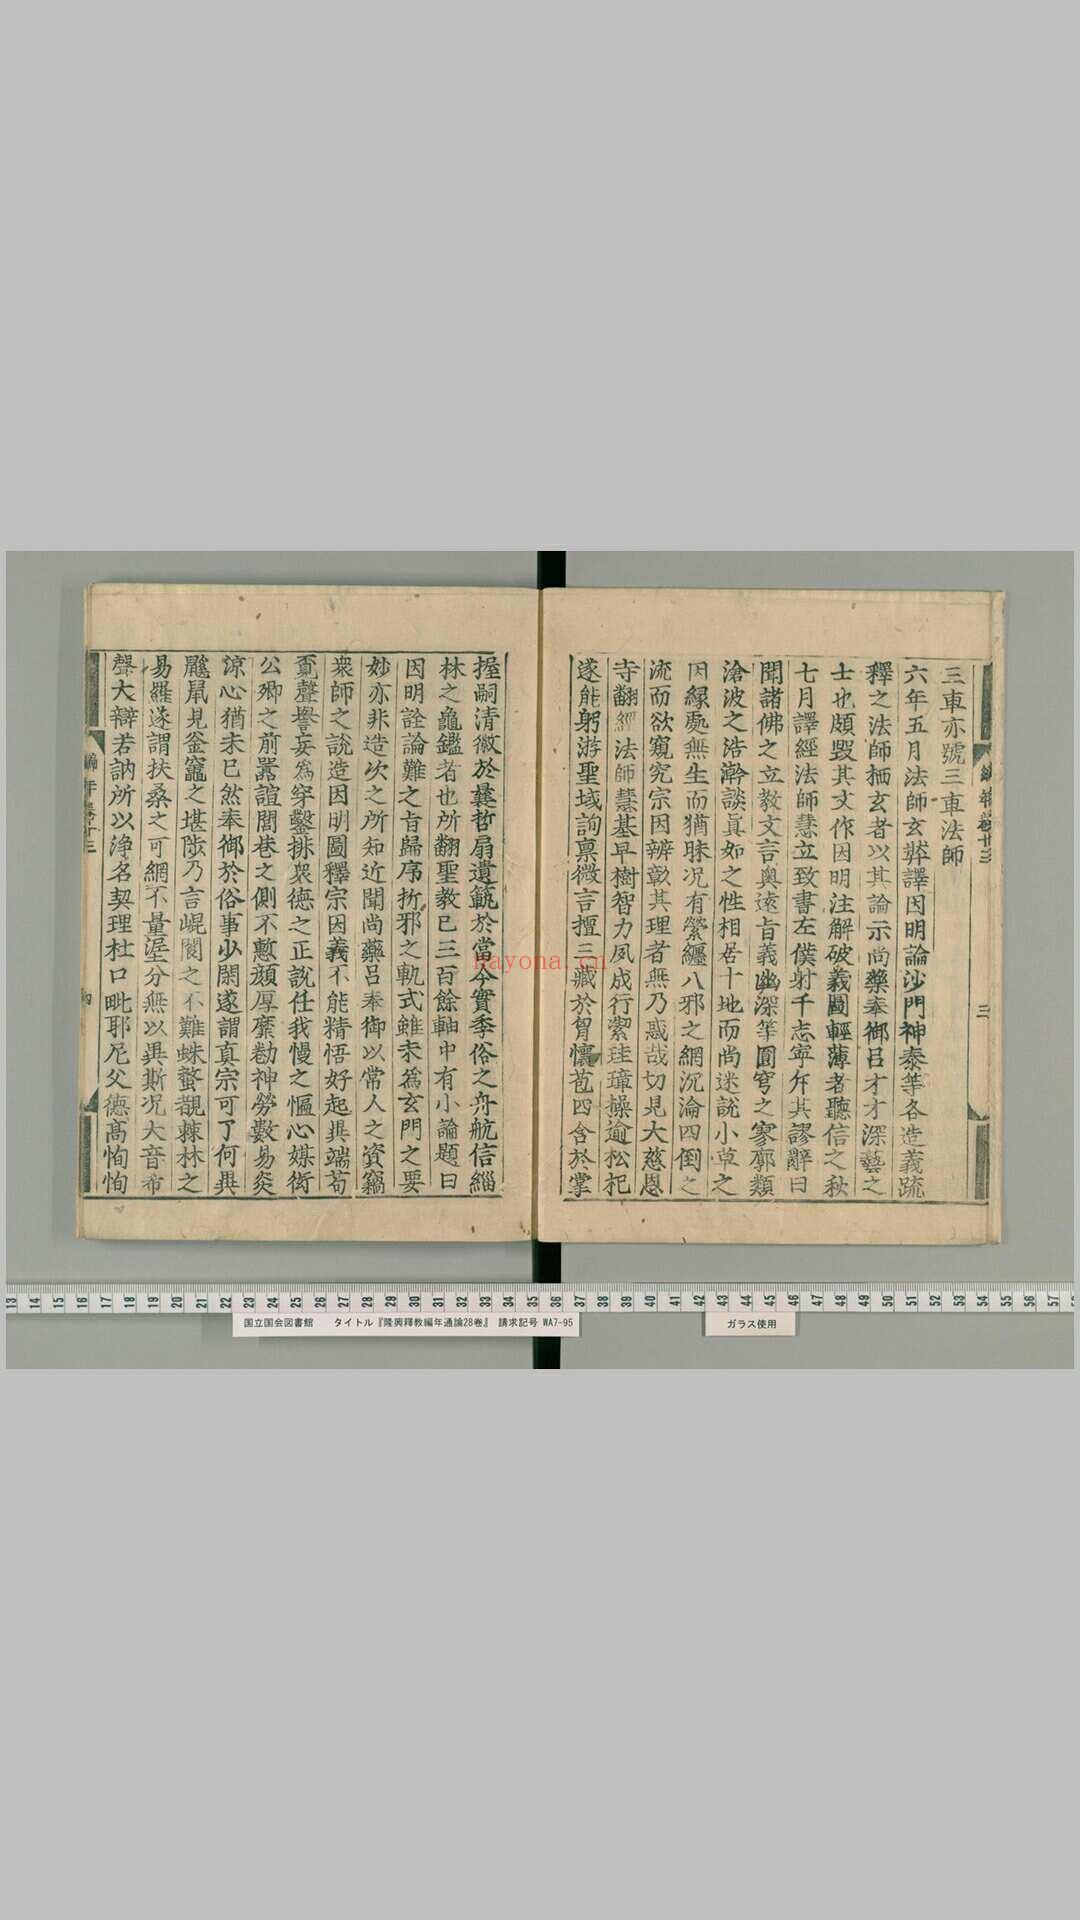 三車亦號三車法師
六年五月法師玄奘譯因明論沙門神泰等各造義疏
釋之法師栖玄者以其論示尚藥奉御呂才才深藝之
士也頗毀其文作因明注解破義圖輕薄者聽信之秋
七月譯經法師慧立致書左僕射于志寧斥其謬辭曰
聞諸佛之立教文言奧遠旨義幽深等圓穹之寥廓類
滄波之浩澣談真如之性相居十地而尚迷說小草之
因緣處無生而猶昧况有縈纏八邪之網沉淪四倒之
流而欲窺究宗因辨彰其理者無乃惑哉切見大慈恩
寺翻經法師慧基早樹智力夙成行潔珪璋操逾松杞
遂能躬游聖域詢稟微言擅三藏於胷懷苞四含於掌
握嗣清徽於曩哲扇遺範於當今實季俗之舟航信緇
林之龜鑑者也所翻聖教已三百餘軸中有小論題曰
因明詮論難之旨歸序折邪之軌式雖未為玄門之要
妙亦非造次之所知近聞尚藥呂奉御以常人之資竊
衆師之說造因明圖釋宗因義不能精悟好起異端苟
覓聲譽妄為穿鑿排衆德之正說任我慢之愊心媒衒
公卿之前嚣諠閭巷之側不慙顏厚靡勌神勞數易炎
涼心猶未已然奉御於俗事少閑遂謂真宗可了何異
鼷鼠見釜竈之堪陟乃言崐閬之不難蛛蝥覩棘林之
易羅遂謂扶桑之可網不量涯分無以異斯况大音希
聲大辯若訥所以淨名契理杜口毗耶尼父德高恂恂
国立国会図書館 タイトル『隆興釋教編年通論28巻』 請求記号 WA7-95
ガラス使用
nayona.cn